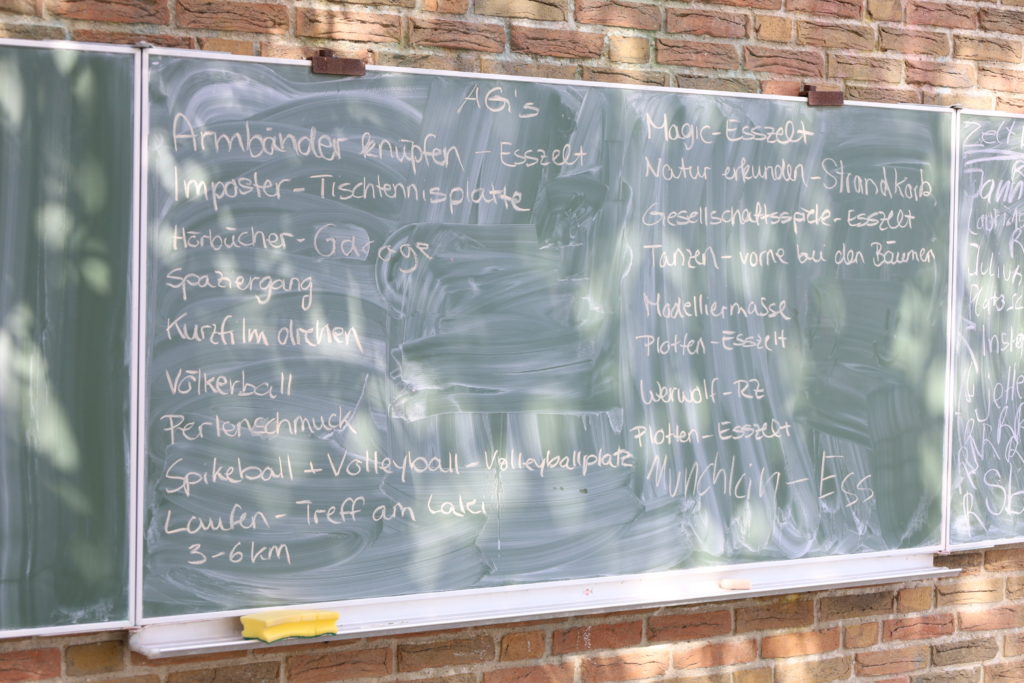 AG's
Armbänder knüpfen - Esszelt
Imposter - Tischtennisplatte
Hörbücher - Garage
Spaziergang
Kurzfilm drehen
Völkerball
Perlenschmuck
Spikeball + Volleyball - Volleyballplatz
Laufen - Treff am Lalei
3-6 km
Magic-Esszelt
Natur erkunden - Strandkorb
Gesellschaftsspiele - Esszelt
Tanzen - vorne bei den Bäumen
Modelliermasse
Plotten - Esszelt
Werwolf - RZ
Plotten - Esszelt
Munchkin - Ess
Zelt